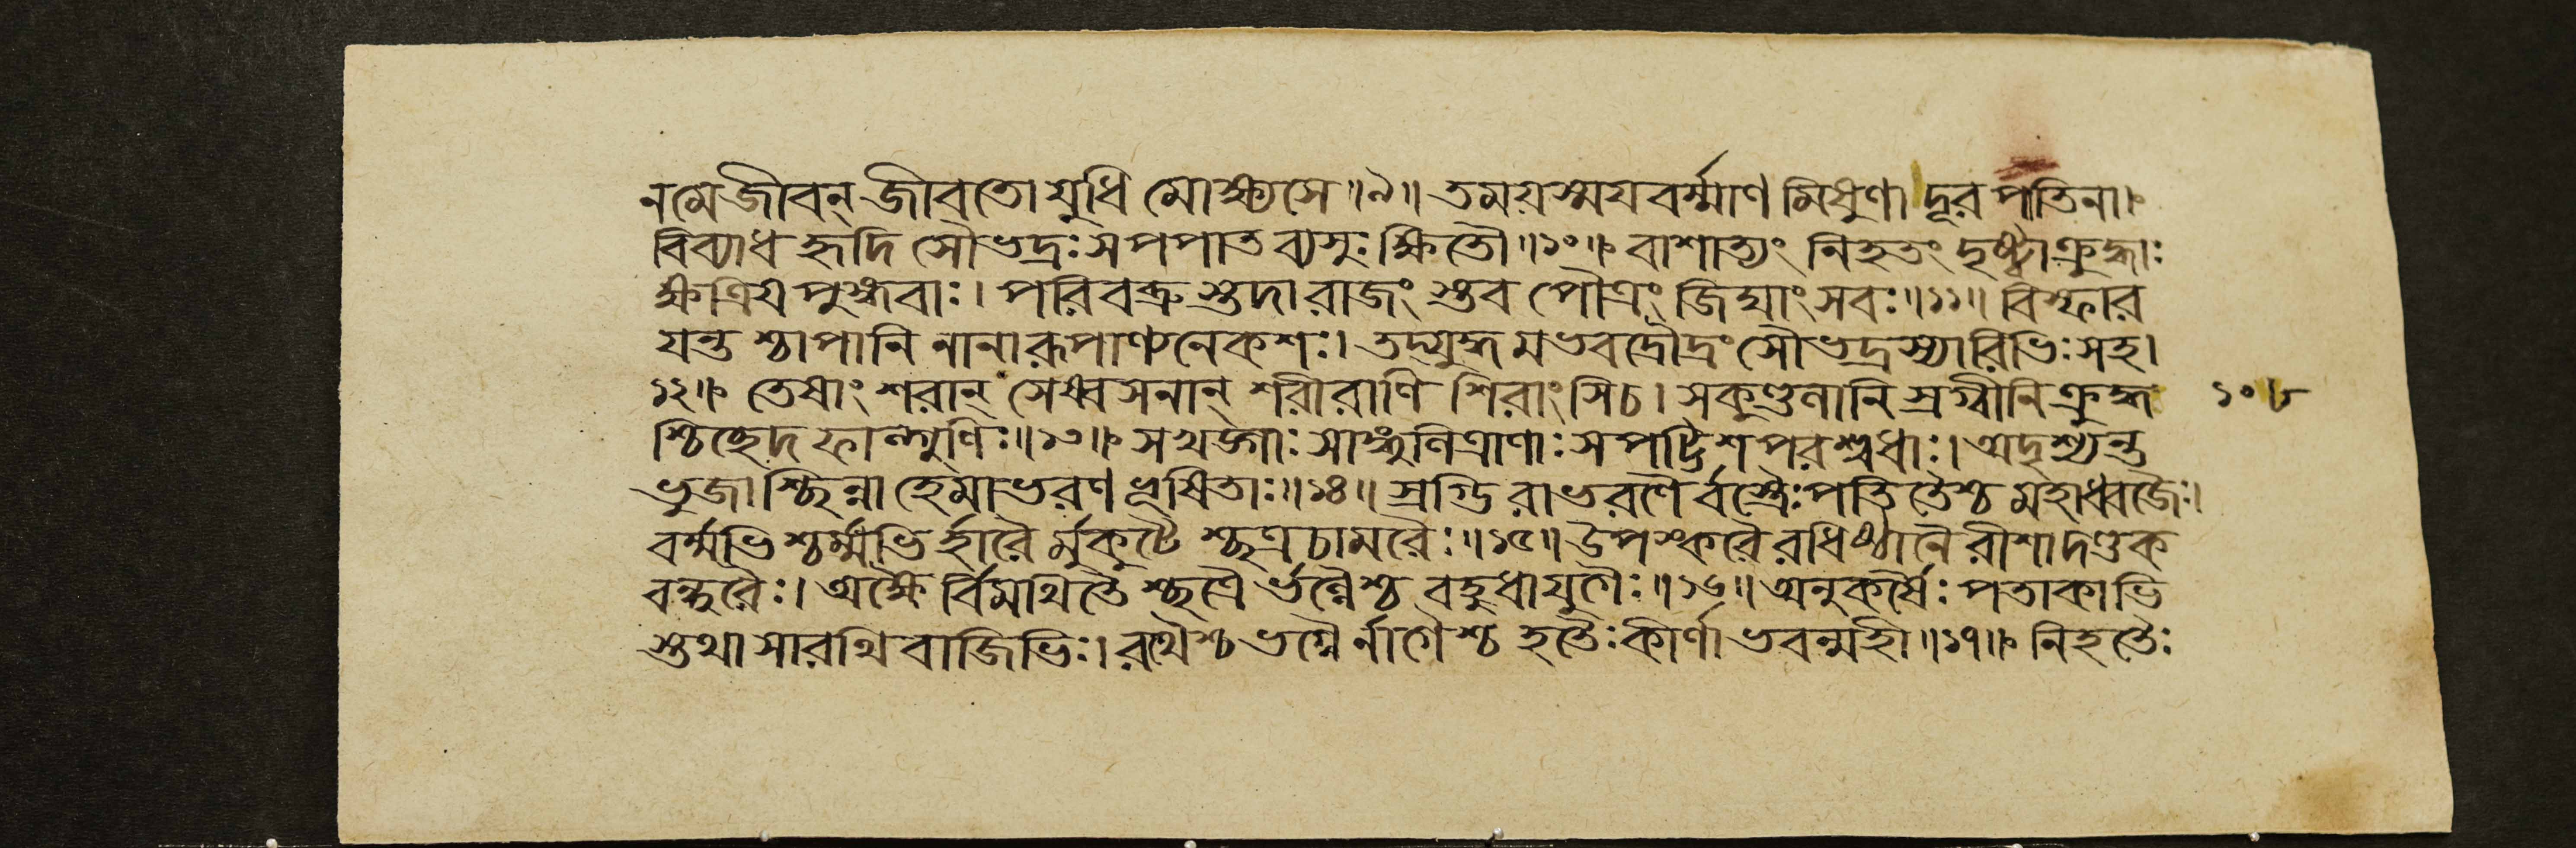 নমেজীবন্ জীবতো যুধি মোক্ষ্যসে॥৯॥ তময়স্ময়বর্ম্মাণ মিষুণা দূর পাতিনা।
বিব্যাধ হৃদি সৌভদ্রঃ সপপাত ব্যসুঃ ক্ষিতৌ॥১০॥ বাশাত্যং নিহতং দৃষ্ট্বা ক্রুদ্ধাঃ
ক্ষত্রিয় পুঙ্গবাঃ। পরিবব্রু স্তদা রাজং স্তব পৌত্রং জিঘাংসবঃ॥১১॥ বিস্ফার
যন্ত শ্চাপানি নানারূপাণ্যনেকশঃ। তদ্যুদ্ধ মভবদ্রৌদ্রং সৌভদ্রস্যারিভিঃ সহ।
১২॥ তেষাং শরান্ সেষ্বসনান্ শরীরাণি শিরাংসিচ। সকুণ্ডলানি স্রগ্বীনি ক্রুদ্ধ ১০৮
শ্চিচ্ছেদ ফাল্গুণিঃ॥১৩॥ সখড়্গাঃ সাঙ্গুলিত্রাণাঃ সপট্টিশ পরশ্বধাঃ। অদৃশ্যন্ত
ভুজা শ্ছিন্না হেমাভরণ ভূষিতাঃ॥১৪॥ স্রগ্ভি রাভরণৈ র্বস্ত্রৈঃ পতিতৈশ্চ মহাধ্বজৈঃ।
বর্ম্মভি শ্চর্ম্মভি র্হারৈ র্মুকুটৈ শ্ছত্রচামরৈঃ॥১৫॥ উপস্করৈ রধিষ্ঠানৈ রীশাদণ্ডক
বন্ধুরৈঃ। অক্ষৈ র্বিমথিতৈ শ্চক্রৈ র্ভগ্নৈশ্চ বহুধাযুগৈঃ॥১৬॥ অনুকর্ষৈঃ পতাকাভি
স্তথা সারথি বাজিভিঃ। রথৈশ্চ ভগ্নৈ র্নাগৈশ্চ হতৈঃ কীর্ণা ভবন্মহী॥১৭॥ নিহতৈঃ